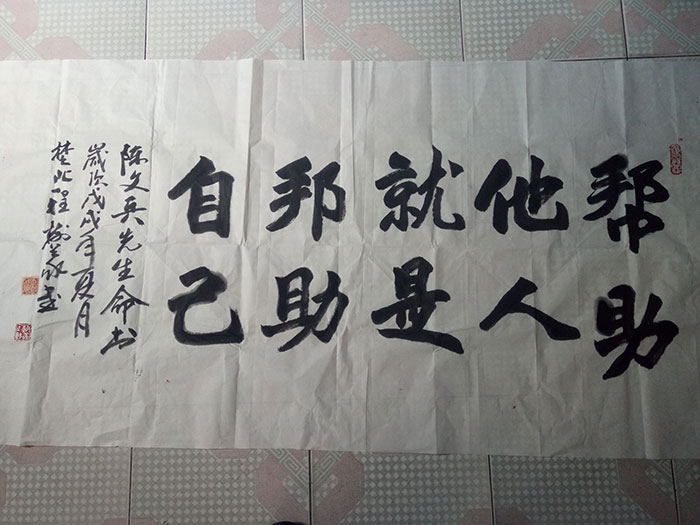 帮助
他人
就是
邦助
自己
陈文兵先生命书
嵗次戊戌年夏月
楚北程